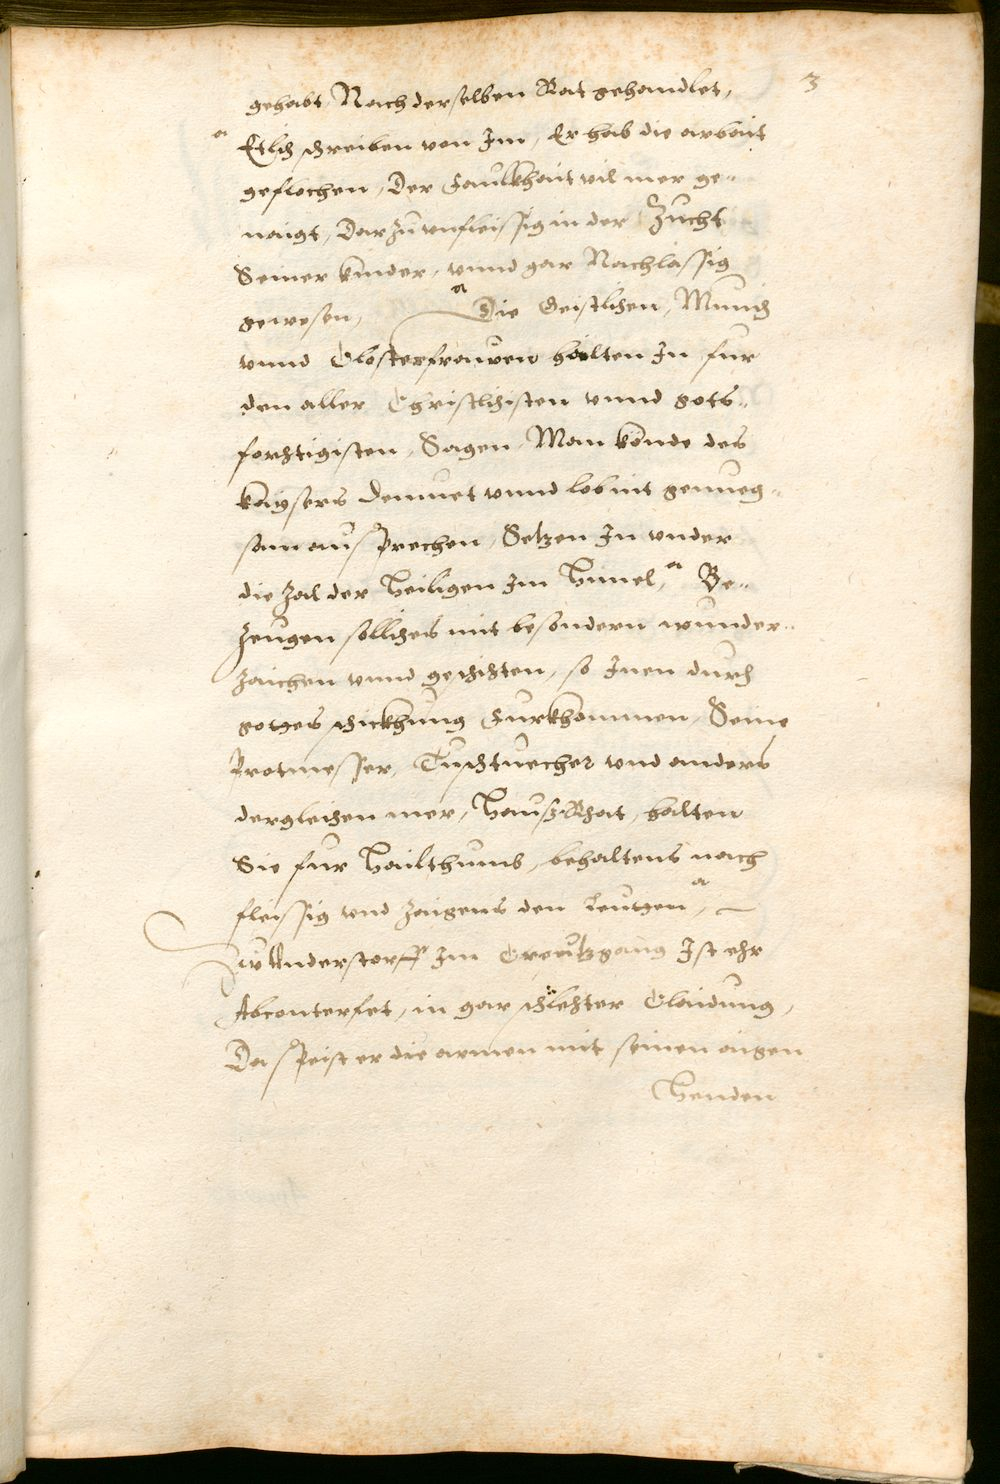 3
gehabt, Nach derselben Rat gehandlet,
Etlich schreiben von Im, Er hab die arbait
geflochen, Der Faulkhait vil mer ge¬
naigt, Dar zu unfleissig in der Zucht
Seiner kinder, unnd gar Nachlässig
gewesen, Die Geistlichen, Münich
unnd Closterfrauen halten In fur
den aller Christlichisten unnd gots¬
forchtigisten, Sagen, Man könde des
kaysers demuet unnd lob nit genueg¬
sam aussprechen, Setzen In under
die Zal der Heiligen Im Himel, Be¬
zeugen solliches mit besondern wunder¬
zaichen unnd geschichten, so Inen durch
gottes schickhung Furkhommen, Seine
Protmesser, Tischtuecher und anders
dergleichen mer, HaussRhat, halten
Sie fur Hailthumb, behaltens noch
fleissig und zaigens den Leutten,
Zu Understorff Im Creutzgang Ist ehr
Abconterfet, in gar schlechter Claidung,
Da speist er die armen mit seinen aigen
Henden